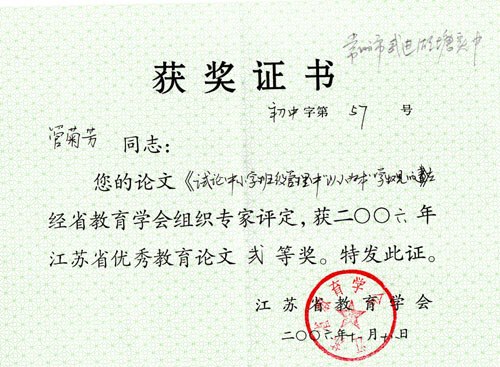 常州市武进湖塘实中
获奖证书
初中字第 57 号
管菊芳 同志：
您的论文《试论中小学班级管理中"以人为本"学生观的
经省教育学会组织专家评定，获二〇〇六年
江苏省优秀教育论文 贰 等奖。特发此证。
江苏省教育学会
二〇〇六年十一月十八日